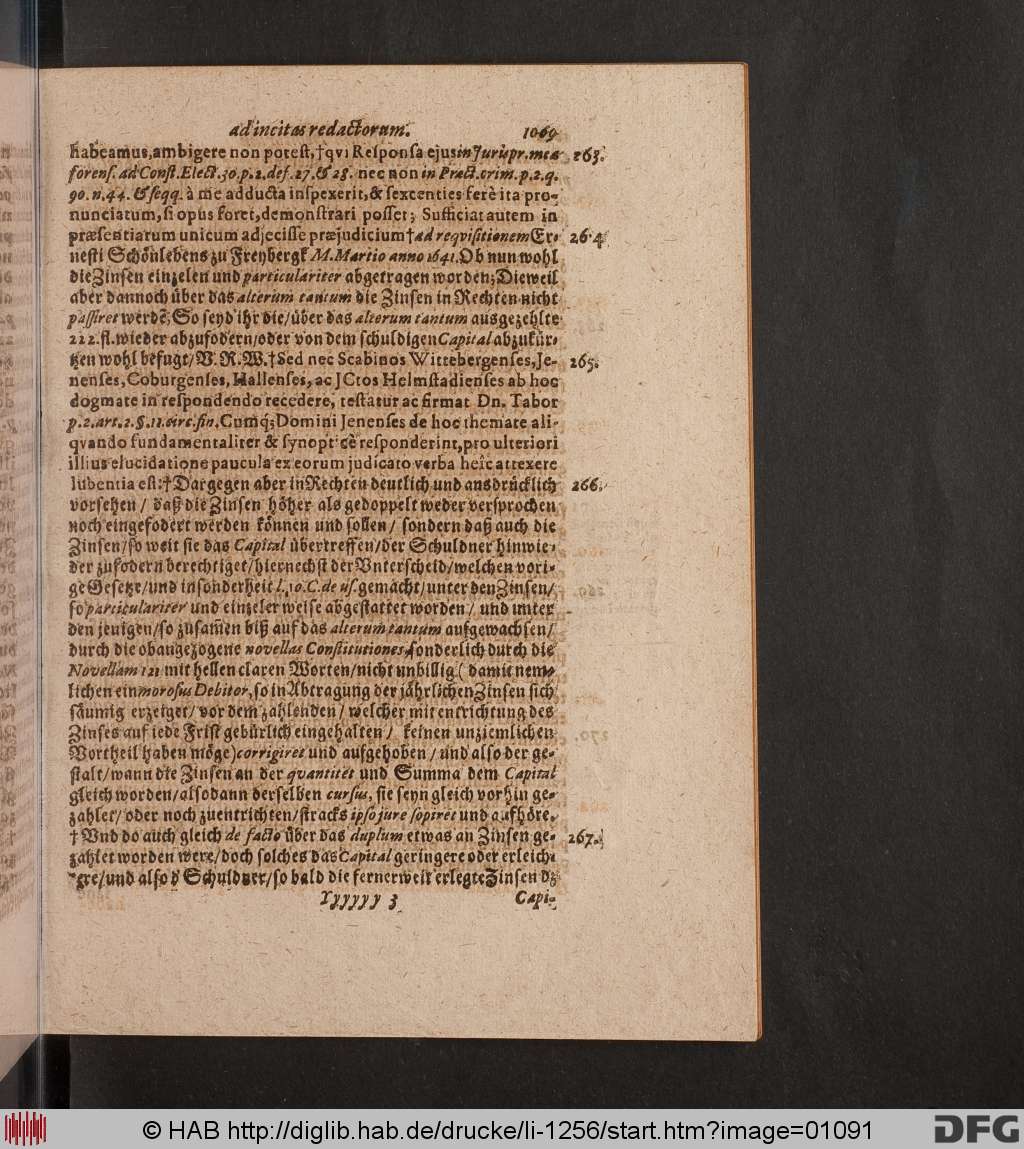 ad incitas redactorum. 1069
habeamus, ambigere non potest, †qvi Responsa ejus in Jurispr. mea 263.
forens. ad Const. Elect. 30. p. 2. def. 27. & 28. nec non in Pract. crim. p. 2. q.
90. n. 44. & seqq. à me adducta inspexerit, & sexcenties ferè ita pro-
nunciatum, si opus foret, demonstrari posset; Sufficiat autem in
præsentiarum unicum adjecisse præjudicium † ad reqvisitionem Er- 264
nesti Schönlebens zu Freybergk M. Martio anno 1641. Ob nun wohl
die Zinsen einzelen und particulariter abgetragen worden; Dieweil
aber dannoch über das alterum tantum die Zinsen in Rechten nicht
passiret werdē; So seyd ihr die/ über das alterum tantum ausgezehlte
222. fl. wieder abzufodern/ oder von dem schuldigen Capital abzukür-
tzen wohl befugt/ V. R. W. † Sed nec Scabinos Wittebergenses, Je- 265.
nenses, Coburgenses, Hallenses, ac JCtos Helmstadienses ab hoc
dogmate in respondendo recedere, testatur ac firmat Dn. Tabor
p. 2. art. 2. §. 11. circ. fin. Cumq; Domini Jenenses de hoc themate ali-
qvando fundamentaliter & synopticè responderint, pro ulteriori
illius elucidatione paucula ex eorum judicato verba heîc attexere
lubentia est: † Dargegen aber in Rechten deutlich und ausdrücklich 266.
vorsehen/ daß die Zinsen höher als gedoppelt weder versprochen
noch eingefodert werden können und sollen/ sondern daß auch die
Zinsen/ so weit sie das Capital übertreffen/ der Schuldner hinwie-
der zufodern berechtiget/ hiernechst der Vnterscheid/ welchen vori-
ge Gesetze/ und insonderheit l. 10. C. de us. gemacht/ unter den Zinsen/
so particulariter und eintzeler weise abgestattet worden/ und unter
den jenigen/ so zusam̄en biß auf das alterum tantum aufgewachsen/
durch die obangezogene novellas Constitutiones, sonderlich durch die
Novellam 121 mit hellen claren Worten/ nicht unbillig (damit nem-
lichen ein morosus Debitor, so in Abtragung der jährlichen Zinsen sich
säumig erzeiget/ vor dem zahlenden/ welcher mit entrichtung des
Zinses auf iede Frist gebürlich eingehalten/ keinen unziemlichen
Vortheil haben möge) corrigiret und aufgehoben/ und also der ge-
stalt/ wann die Zinsen an der quantitet und Summa dem Capital
gleich worden/ alsodann derselben cursus, sie seyn gleich vorhin ge-
zahlet/ oder noch zuentrichten/ stracks ipso jure sopiret und aufhöre.
† Vnd do auch gleich de facto über das duplum etwas an Zinsen ge- 267.
zahlet worden were/ doch solches das Capital geringere oder erleich-
tere/ und also d' Schuldner/ so bald die fernerweit erlegte Zinsen dz
Yyyyyy 3 Capi-
© HAB http://diglib.hab.de/drucke/li-1256/start.htm?image=01091
DFG